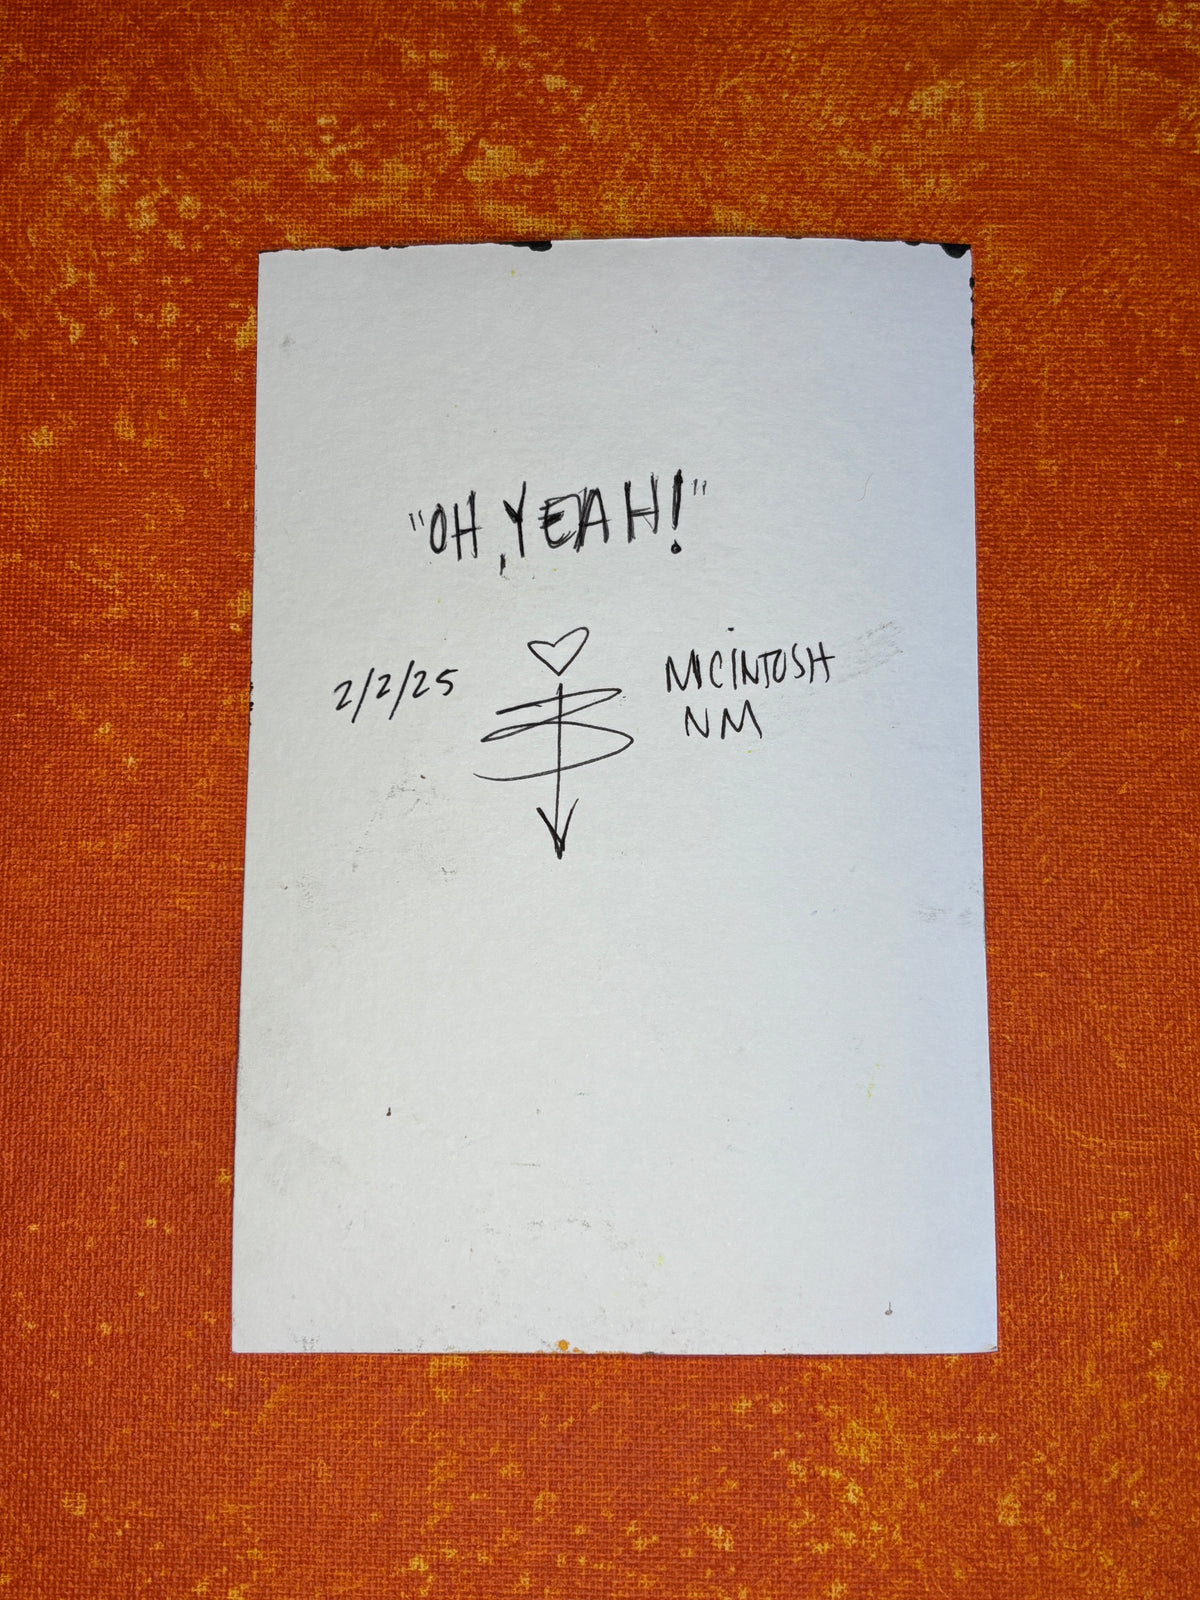 "OH, YEAH!"
2/2/25
MCINTOSH
NM